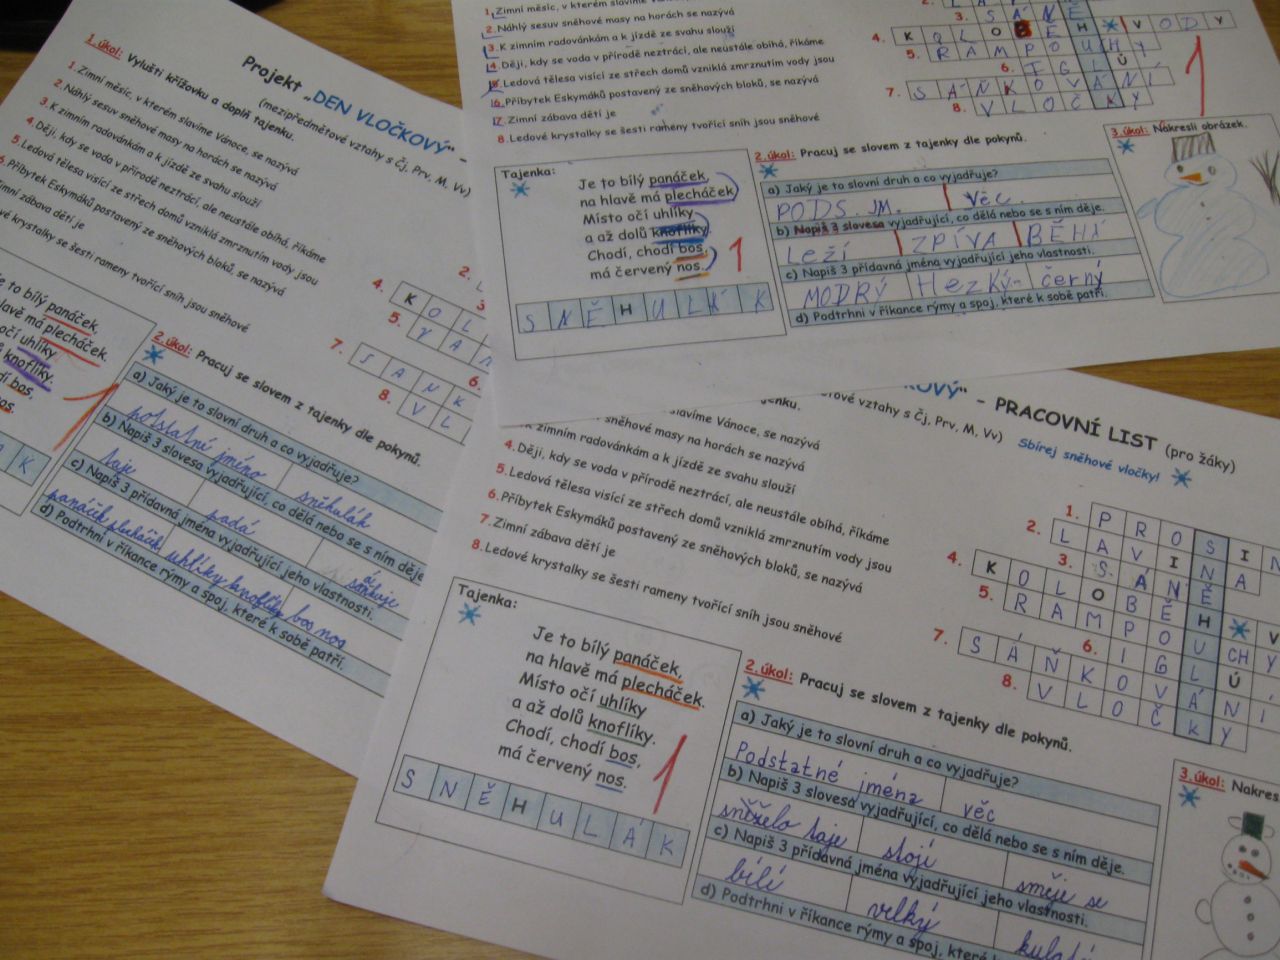 Projekt „DEN VLOČKOVÝ" -
(mezipředmětové vztahy s Čj, Prv, M, Vv)
1.úkol: Vylušti křížovku a doplň tajenku.
1. Zimní měsíc, v kterém slavíme Vánoce, se nazývá
2. Náhlý sesuv sněhové masy na horách se nazývá
3. K zimním radovánkám a k jízdě ze svahu slouží
4. Ději, kdy se voda v přírodě neztrácí, ale neustále obíhá, říkáme
5. Ledová tělesa visící ze střech domů vzniklá zmrznutím vody jsou
6. Příbytek Eskymáků postavený ze sněhových bloků, se nazývá
zimní zábava dětí je
vé krystalky se šesti rameny tvořící sníh jsou sněhové
2.
3
4. K O L
5. R A
6.
7. S A N K
8. V L
e to bílý panáček,
hlavě má plecháček.
očí uhlíky
knoflíky.
dí bos,
nos.
K
2.úkol: Pracuj se slovem z tajenky dle pokynů.
a) Jaký je to slovní druh a co vyjadřuje?
podstatné jméno sněhulák
b) Napiš 3 slovesa vyjadřující, co dělá nebo se s ním děje
taje padá
c) Napiš 3 přídavná jména vyjadřující jeho vlastnosti.
panáček plecháček uhlíky knoflíky bos nos
d) Podtrhni v říkance rýmy a spoj, které k sobě patří.
1. Zimní měsíc, v kterém slavíme
2. Náhlý sesuv sněhové masy na horách se nazývá
3. K zimním radovánkám a k jízdě ze svahu slouží
4. Ději, kdy se voda v přírodě neztrácí, ale neustále obíhá, říkáme
5. Ledová tělesa visící ze střech domů vzniklá zmrznutím vody jsou
6. Příbytek Eskymáků postavený ze sněhových bloků, se nazývá
7. Zimní zábava dětí je
8. Ledové krystalky se šesti rameny tvořící sníh jsou sněhové
2.
3. S Á N Ě
4. K O L O B Ě H V O D Y
5. R A M P O U CH Y
6. I G L Ú
7. S Á Ň K O V Á N Í
8. V L O Č K Y
1
Tajenka:
Je to bílý panáček,
na hlavě má plecháček
Místo očí uhlíky
a až dolů knoflíky.
Chodí, chodí bos,
má červený nos.
1
S N Ě H U L Á K
2.úkol: Pracuj se slovem z tajenky dle pokynů.
a) Jaký je to slovní druh a co vyjadřuje?
PODS. JM. věc.
b) Napiš 3 slovesa vyjadřující, co dělá nebo se s ním děje.
Leží ZPÍVA BĚHÁ
c) Napiš 3 přídavná jména vyjadřující jeho vlastnosti.
MODRÝ Hezký černý
d) Podtrhni v říkance rýmy a spoj, které k sobě patří.
3.úkol: Nakresli obrázek.
KOVÝ" - PRACOVNÍ LIST (pro žáky)
vztahy s Čj, Prv, M, Vv)
Sbírej sněhové vločky!
tajenku.
slavíme Vánoce, se nazývá
sněhové masy na horách se nazývá
K zimním radovánkám a k jízdě ze svahu slouží
4. Ději, kdy se voda v přírodě neztrácí, ale neustále obíhá, říkáme
5. Ledová tělesa visící ze střech domů vzniklá zmrznutím vody jsou
6. Příbytek Eskymáků postavený ze sněhových bloků, se nazývá
7. Zimní zábava dětí je
8. Ledové krystalky se šesti rameny tvořící sníh jsou sněhové
1. P R O S I N
2. L A V I N A
3. S Á N Ě
4. K O L O B Ě H V
5. R A M P O U CH Y
6. I G L Ú
7. S Á Ň K O V Á N Í
8. V L O Č K Y
Tajenka:
Je to bílý panáček,
na hlavě má plecháček.
Místo očí uhlíky
a až dolů knoflíky.
Chodí, chodí bos,
má červený nos.
1
S N Ě H U L Á K
2.úkol: Pracuj se slovem z tajenky dle pokynů.
a) Jaký je to slovní druh a co vyjadřuje?
Podstatné jména věc
b) Napiš 3 slovesa vyjadřující, co dělá nebo se s ním děje.
taje stojí směje se
c) Napiš 3 přídavná jména vyjadřující jeho vlastnosti.
bílí velký
d) Podtrhni v říkance rýmy a spoj, které k
3.úkol: Nakres